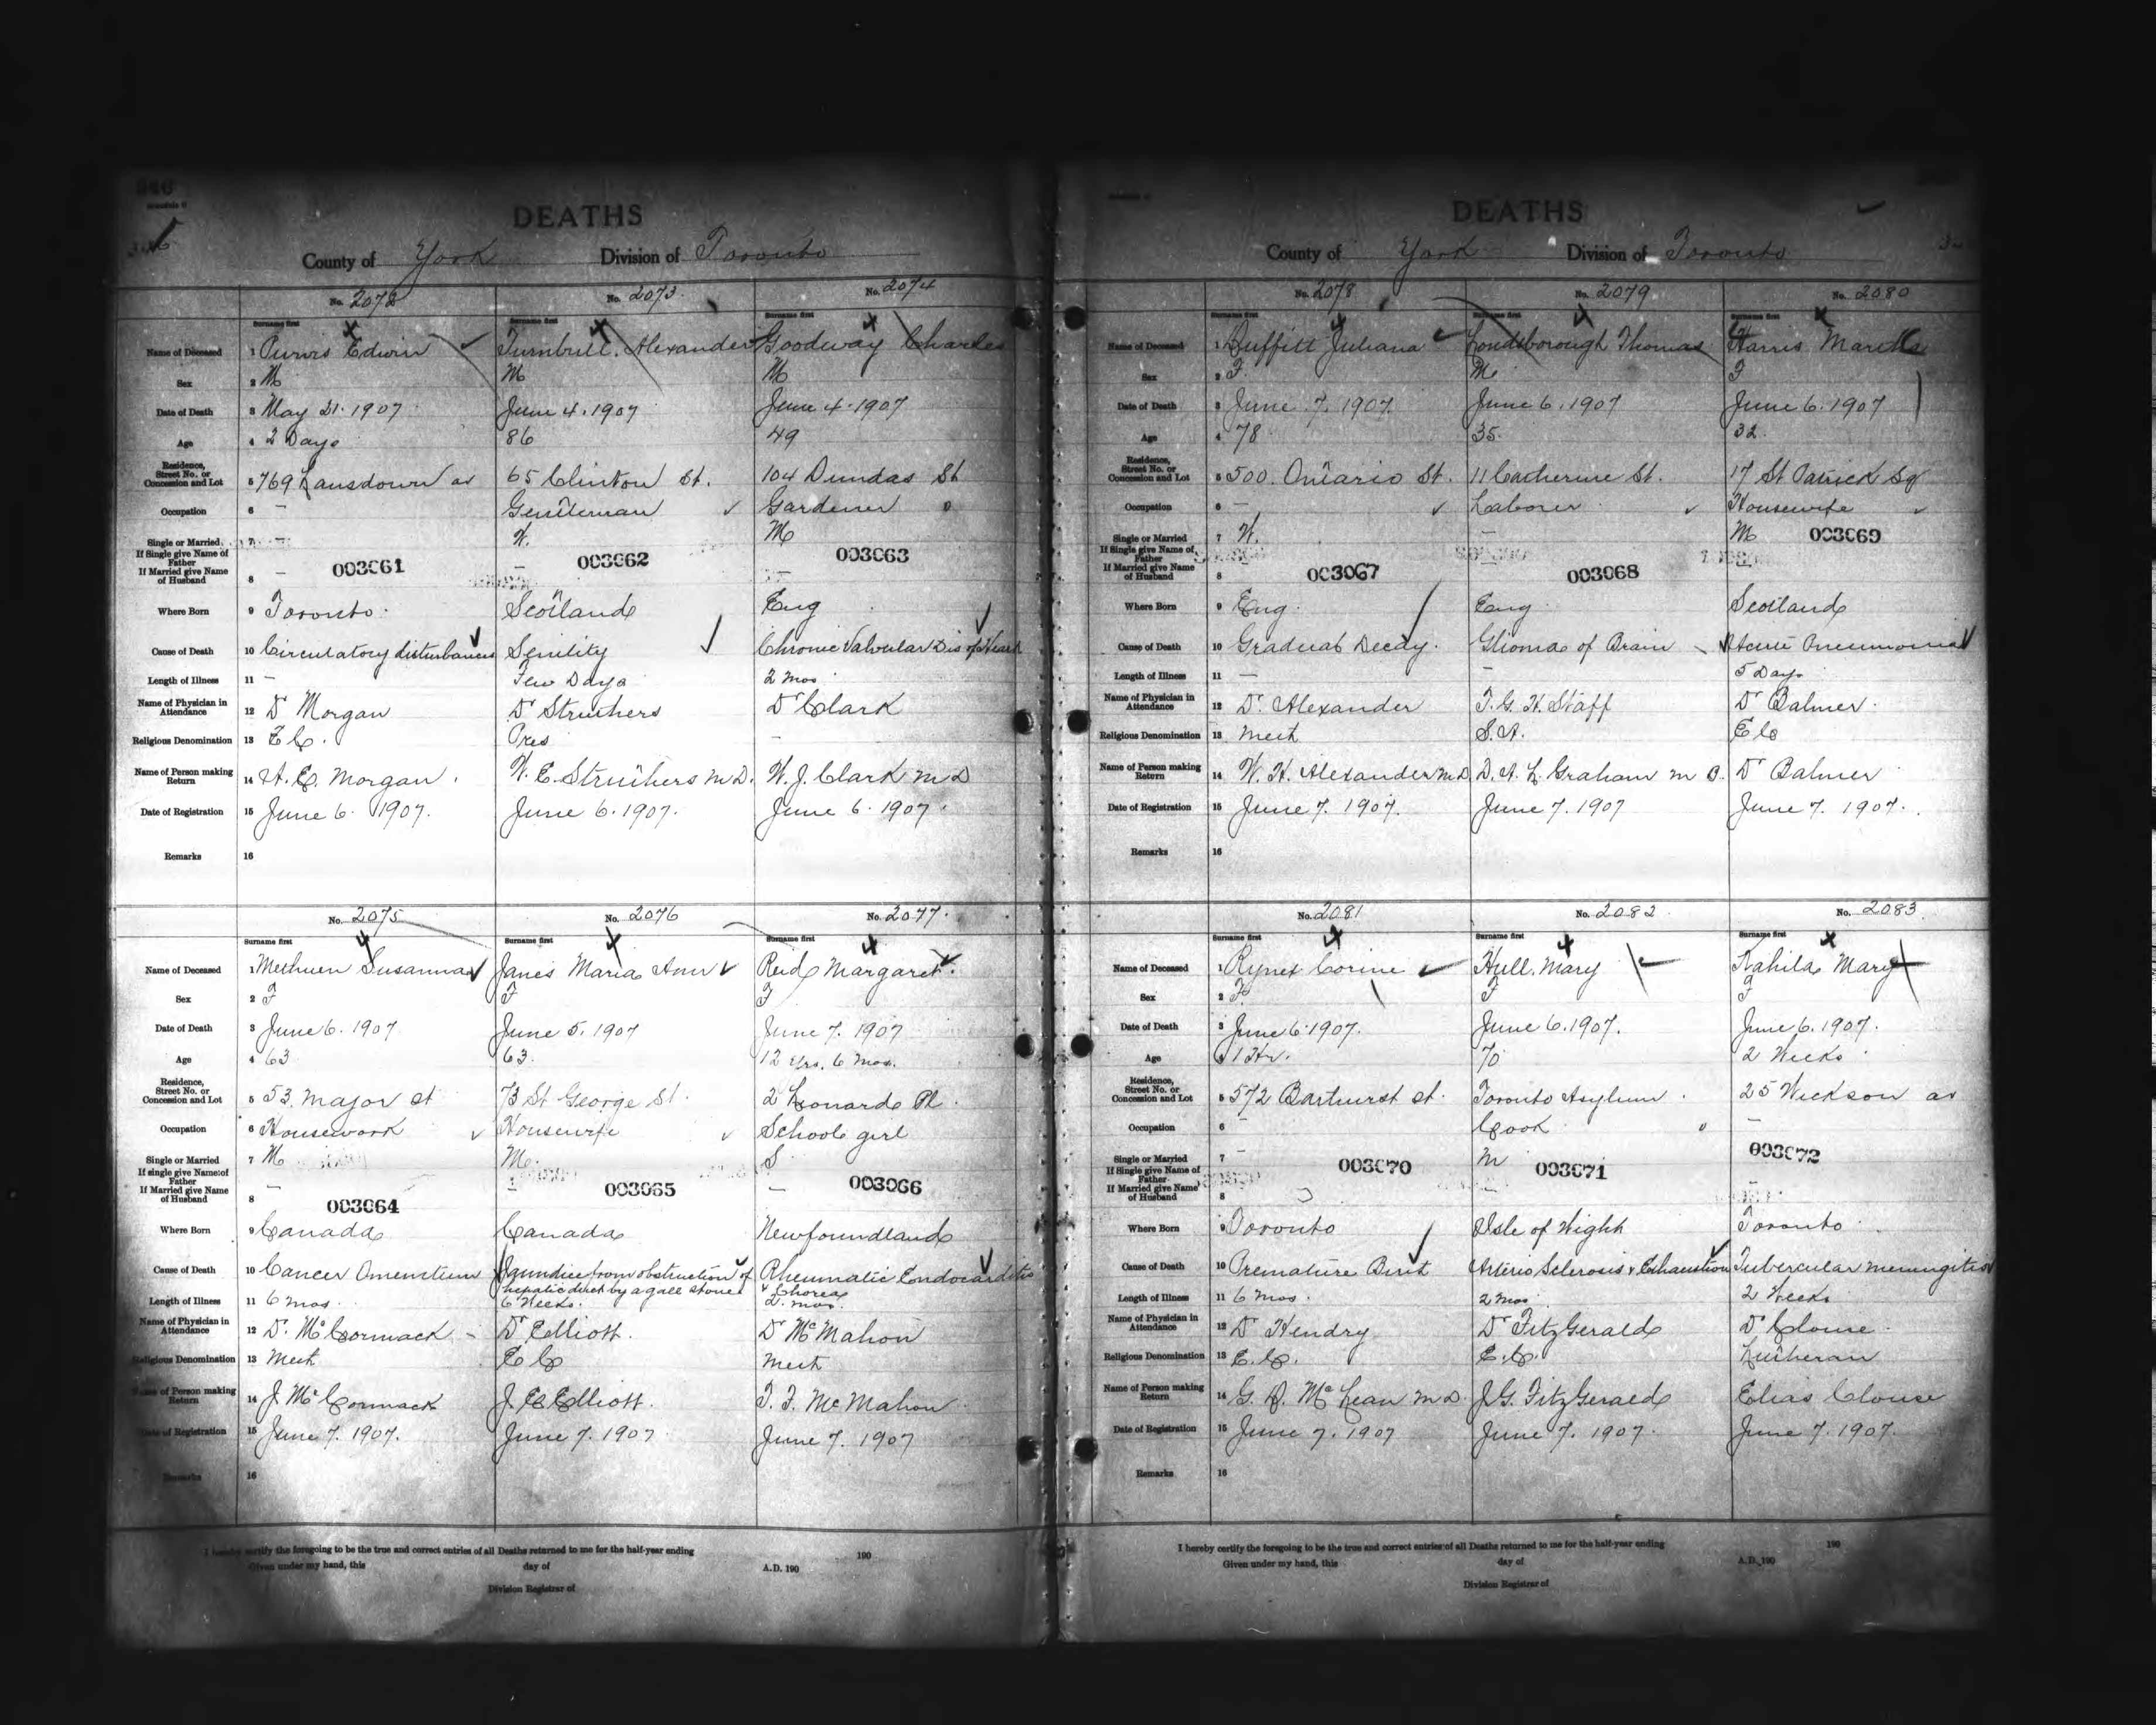 DEATHS
County of York Division of Toronto
No. 2072 No. 2073 No. 2074
Surname first Surname first Surname first
Name of Deceased 1 Purvis Edwin Turnbull, Alexander Goodway Charles
Sex 2 M M M
Date of Death 3 May 21. 1907 June 4. 1907 June 4. 1907
Age 4 2 Days 86 49
Residence, Street No. or Concession and Lot 5 769 Lansdown av 65 Clinton St. 104 Dundas St
Occupation 6 - Gentleman Gardener
Single or Married 7 - W. M
If Single give Name of Father
If Married give Name of Husband 8 - - -
003061 003062 003063
Where Born 9 Toronto Scotland Eng
Cause of Death 10 Circulatory disturbances Senility Chronic Valvular Dis of Heart
Length of Illness 11 - Few Days 2 mos
Name of Physician in Attendance 12 Dr Morgan Dr Struthers Dr Clark
Religious Denomination 13 E C. Pres -
Name of Person making Return 14 A. E. Morgan. W. E. Struthers M D. W. J. Clark M D
Date of Registration 15 June 6. 1907. June 6. 1907. June 6. 1907.
Remarks 16
No. 2075 No. 2076 No. 2077.
Surname first Surname first Surname first
Name of Deceased 1 Methuen Susanna Janes Maria Ann Reid Margaret.
Sex 2 F F F
Date of Death 3 June 6. 1907 June 5. 1907 June 7. 1907
Age 4 63 63. 12 Yrs. 6 mos.
Residence, Street No. or Concession and Lot 5 53. Major St 73 St George St. 2 Leonard Pl.
Occupation 6 Housework Housewife School girl
Single or Married 7 M M. S
If single give Name of Father
If Married give Name of Husband 8 - - -
003064 003065 003066
Where Born 9 Canada Canada Newfoundland
Cause of Death 10 Cancer Omentum Jaundice from obstruction of Rheumatic Endocarditis
hepatic duct by a gall stone & Chorea
Length of Illness 11 6 mos. 6 Weeks. 2. mos.
Name of Physician in Attendance 12 Dr. McCormack Dr Elliott. Dr McMahon
Religious Denomination 13 Meth E C Meth
Name of Person making Return 14 J. McCormack J. E Elliott. T. F. McMahon
Date of Registration 15 June 7. 1907. June 7. 1907 June 7. 1907
Remarks 16
I hereby certify the foregoing to be the true and correct entries of all Deaths returned to me for the half-year ending 190
Given under my hand, this day of A.D. 190
Division Registrar of
DEATHS
County of York Division of Toronto
No. 2078 No. 2079 No. 2080
Surname first Surname first Surname first
Name of Deceased 1 Duffitt Juliana Londsborough Thomas Harris Martha
Sex 2 F. M. F
Date of Death 3 June 7. 1907. June 6. 1907 June 6. 1907
Age 4 78. 35. 32.
Residence, Street No. or Concession and Lot 5 500. Ontario St. 11 Catherine St. 17 St Patrick Sq
Occupation 6 - Laborer Housewife
Single or Married 7 W. - M
If Single give Name of Father
If Married give Name of Husband 8
003067 003068 003069
Where Born 9 Eng. Eng. Scotland
Cause of Death 10 Gradual Decay. Glioma of Brain Acute Pneumonia
Length of Illness 11 - - 5 Days
Name of Physician in Attendance 12 Dr. Alexander T. G. H. Staff Dr Balmer.
Religious Denomination 13 Meth S. A. E C
Name of Person making Return 14 W. H. Alexander M D D. A. L. Graham M B. Dr Balmer
Date of Registration 15 June 7. 1907. June 7. 1907 June 7. 1907.
Remarks 16
No. 2081 No. 2082 No. 2083
Surname first Surname first Surname first
Name of Deceased 1 Rynex Corine Hull. Mary Kahila Mary
Sex 2 F. F F
Date of Death 3 June 6. 1907. June 6. 1907. June 6. 1907.
Age 4 1 Hr. 70 2 Weeks
Residence, Street No. or Concession and Lot 5 572 Barthurst st. Toronto Asylum. 25 Wickson av
Occupation 6 - Cook -
Single or Married 7 - M
If Single give Name of Father
If Married give Name of Husband 8
003070 003071 003072
Where Born 9 Toronto Isle of Wight Toronto
Cause of Death 10 Premature Birth Arterio Sclerosis & Exhaustion Tubercular meningitis
Length of Illness 11 6 mos. 2 mos 2 Weeks
Name of Physician in Attendance 12 Dr Hendry Dr FitzGerald Dr Clouse
Religious Denomination 13 E. C. E. C. Lutheran
Name of Person making Return 14 G. D. McLean M D. J G. FitzGerald Elias Clouse
Date of Registration 15 June 7. 1907 June 7. 1907. June 7. 1907.
Remarks 16
I hereby certify the foregoing to be the true and correct entries of all Deaths returned to me for the half-year ending 190
Given under my hand, this day of A.D. 190
Division Registrar of